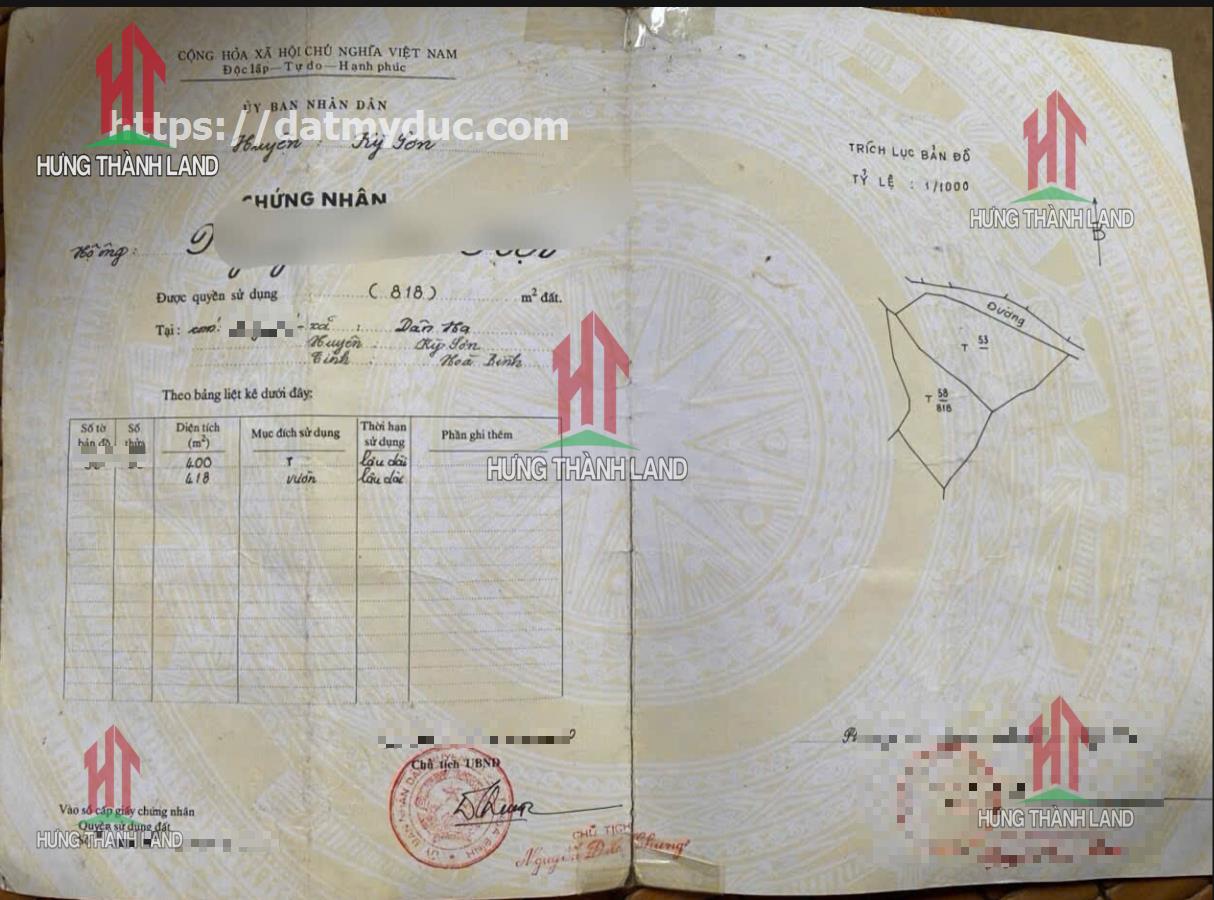 CỘNG HÒA XÃ HỘI CHỦ NGHĨA VIỆT NAM
Độc lập — Tự do — Hạnh phúc
ỦY BAN NHÂN DÂN
https://datmyduc.com
Huyện : Kỳ Sơn
CHỨNG NHẬN
Hộ ông:
Được quyền sử dụng (818) m² đất.
Tại: xóm: xã : Dân Hạ
Huyện : Kỳ Sơn
Tỉnh : Hoà Bình
Theo bảng liệt kê dưới đây:
Số tờ bản đồ Số thửa Diện tích (m²) Mục đích sử dụng Thời hạn sử dụng Phần ghi thêm
400 T lâu dài
418 vườn lâu dài
Chủ tịch UBND
CHỦ TỊCH
Nguyễn Đức Chung
Vào sổ cấp giấy chứng nhận
Quyền sử dụng đất
TRÍCH LỤC BẢN ĐỒ
TỶ LỆ : 1/1000
B
Đường
T 53
T 58
818
HT
HƯNG THÀNH LAND
HT
HƯNG THÀNH LAND
HT
HƯNG THÀNH LAND
HT
HƯNG THÀNH LAND
HT
HƯNG THÀNH LAND